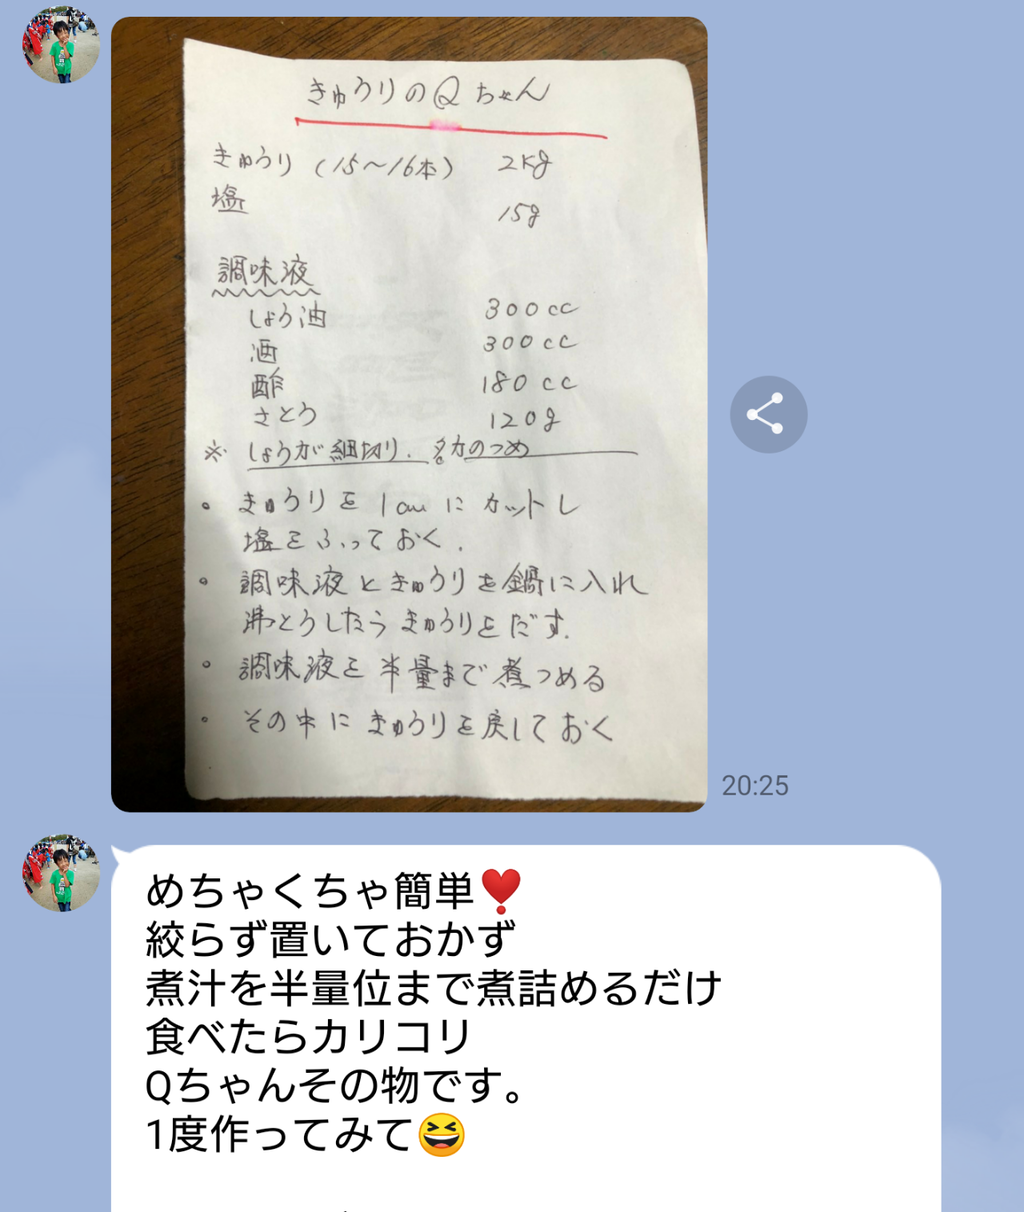 きゅうりのQちゃん
きゅうり（15～16本） 2kg
塩 15g
調味液
しょう油 300cc
酒 300cc
酢 180cc
さとう 120g
※ しょうが細切り. タカのつめ
・ きゅうりを1cmにカットし
塩をふっておく.
・ 調味液ときゅうりを鍋に入れ
沸とうしたらきゅうりをだす.
・ 調味液を半量まで煮つめる
・ その中にきゅうりを戻しておく
20:25
めちゃくちゃ簡単❣️
絞らず置いておかず
煮汁を半量位まで煮詰めるだけ
食べたらカリコリ
Qちゃんその物です。
1度作ってみて😆